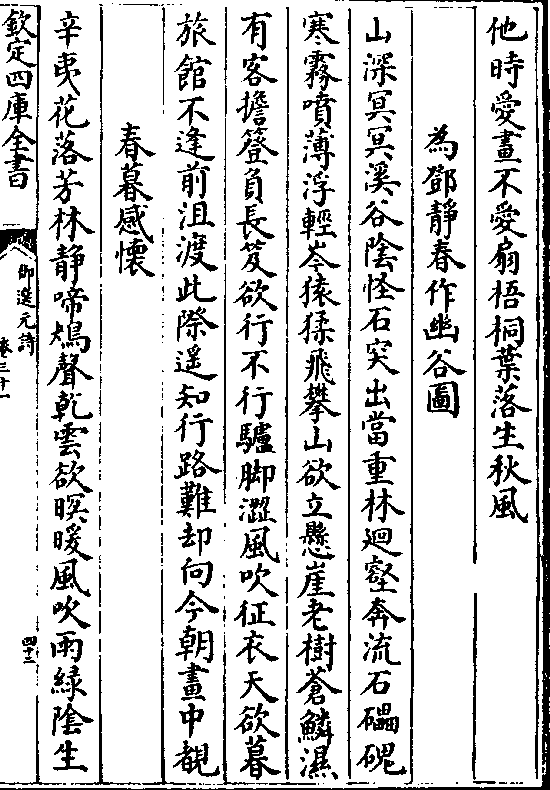 他時愛畫不愛扇梧桐葉落生秋風
為鄧靜春作幽谷圖
山深冥冥溪谷陰怪石突出當重林迴壑奔流石磥磈
寒霧噴薄浮輕岑猿猱飛攀山欲立懸崖老樹蒼鱗濕
有客擔簦負長笈欲行不行驢脚澀風吹征衣天欲暮
旅館不逢前沮渡此際遥知行路難却向今朝畫中覩
春暮感懷
辛夷花落芳林靜啼鴂聲乾雲欲暝暖風吹雨緑陰生
欽定四庫全書
御選元詩
卷三十一
四十三